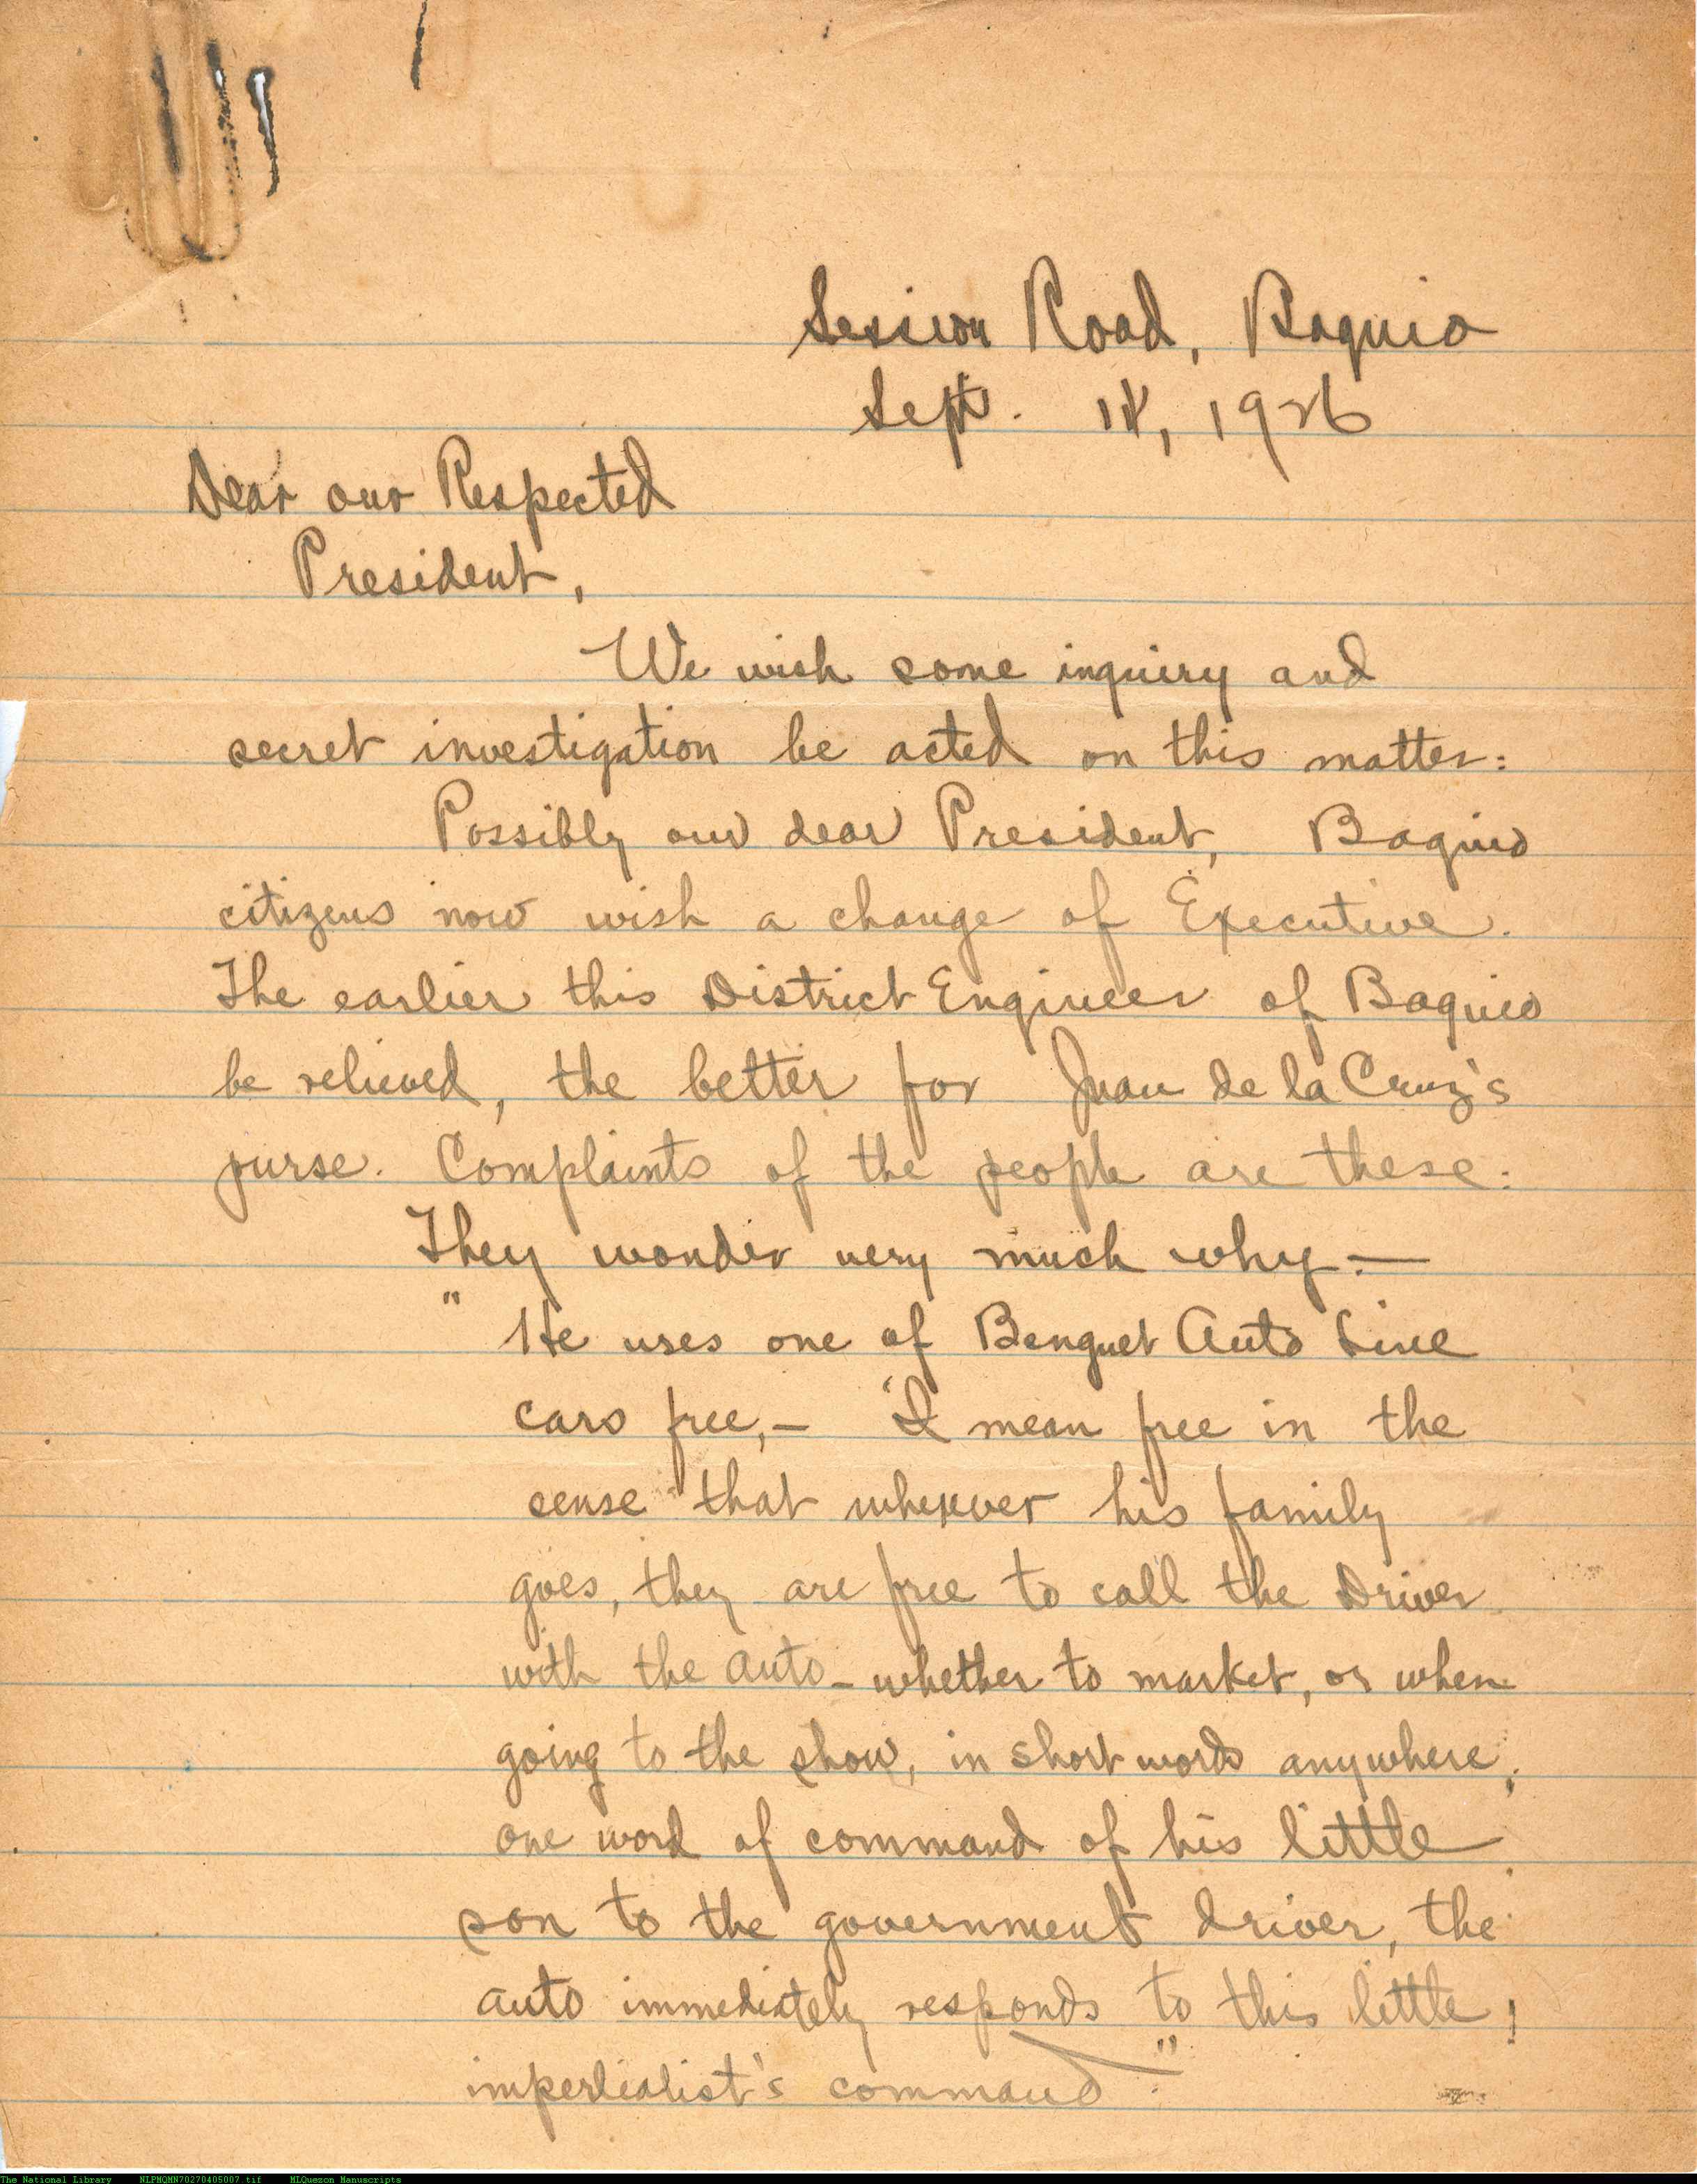 Session Road, Baguio
Sept. 14, 1926
Dear our Respected
President,
We wish some inquiry and
secret investigation be acted on this matter:
Possibly our dear President, Baguio
citizens now wish a change of Executive.
The earlier this District Engineer of Baguio
be relieved, the better for Juan de la Cruz's
purse. Complaints of the people are these:
They wonder very much why:—
"He uses one of Benguet Auto Line
cars free,— 'I mean free in the
sense that wherever his family
goes, they are free to call the Driver
with the auto - whether to market, or when
going to the show, in short words anywhere;
one word of command of his little
son to the government driver, the
auto immediately responds to this little
imperlialist's command."
The National Library NLPMQMN70270405007.tif MLQuezon Manuscripts